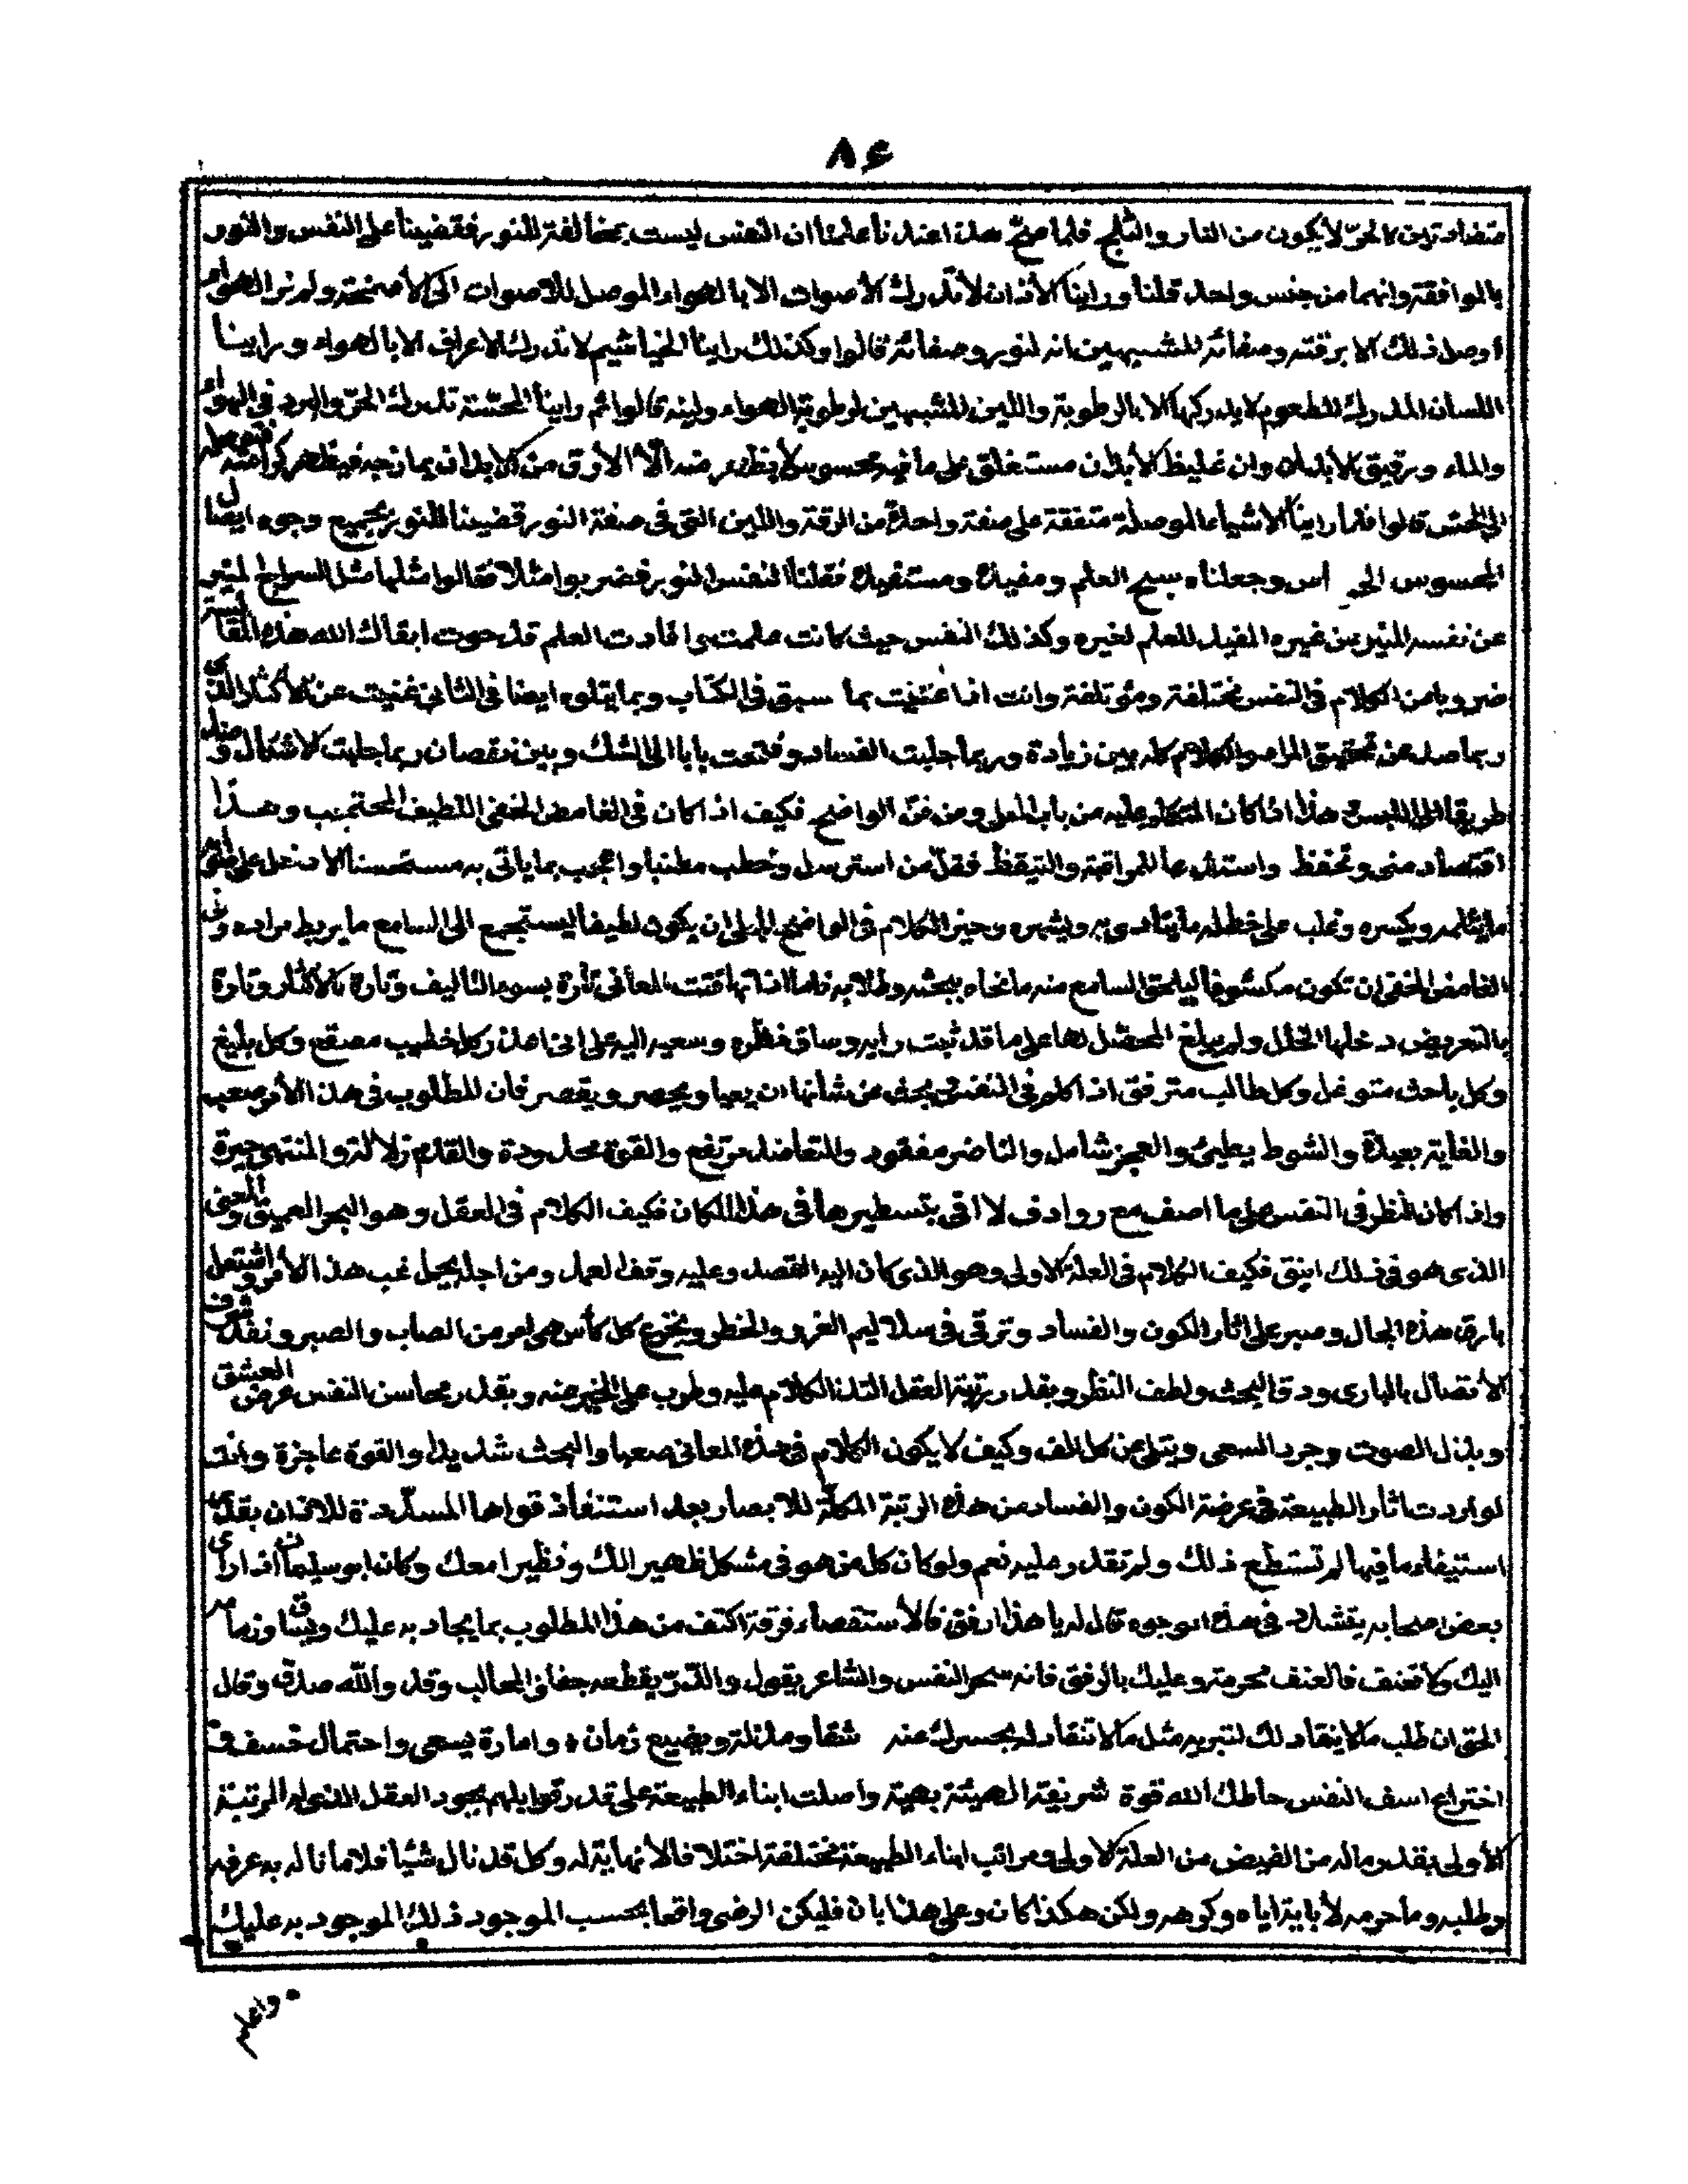 ٨۶
متضادتين كالحرّ لا يكون من النار والثلج فلما صحّ هذا عندنا علمنا ان النفس ليست بمخالفة للنور فقضينا على النفس والنور
بالموافقة وانهما من جنس واحد قلنا وراينا الأذان لا تدرك الأصوات الا بالهواء الموصل للاصوات الى الأصمخة ولم نر الهواء
اوصل ذلك الا برقته وصفائه للشبيهين انه لنوره وصفائه قالوا وكذلك راينا الخياشيم لا تدرك الاعراف الا بالهواء وراينا
اللسان المدرك للطعوم لا يدركها الا بالرطوبة واللين للشبيهين لرطوبة الهواء ولينه قالوا ثم راينا المحسّة تدرك الحرّ والبرد في الهواء
والماء ورقيق الأبدان وان غليظ الأبدان مستغلق على ما فيه محسوس لا يظهر منه الّا الأرق من الأبدان يمازجه فيظهر كوامنه فتوصله
الى الحسّ قالوا فلما راينا الاشياء الموصلة متفقة على صفة واحدة من الرقة واللين التي في صفة النور قضينا للنور بجميع وجوه ايصال
المحسوس الى اس وجعلناه يسيح العلم ومفيدة ومستفيدة فقلنا النفس النور فضربوا مثلا فقالوا مثلها مثل السراج المنير
عن نفسه المنير من غيره المفيد للعلم لغيره وكذلك النفس حيث كانت علمت بما افادت العلم قد حوت ابقاك الله هذه المقابسة
ضروبا من الكلام في النفس مختلفة ومؤتلفة وانت اذا عنيت بما سبق في الكتاب وبما يتلوه ايضا في الثاني غنيت عن الأكثار الذي
ربما صد عن تحقيق المراد والكلام كله بين زيادة وربما جلبت الفساد وفتحت بابا الى الشك وبين نقصان ربما جلبت الاشكال وضل
طريقا الى اللبس هذا اذا كان المتكلم عليه من باب الجلي ومن فنّ الواضح فكيف اذا كان في الغامض الخفي اللطيف المحتجب وهذا
اقتصاد مني وتحفظ واستدعا للمراقبة والتيقظ فقلّ من استرسل وخطب مطنبا واعجب بما ياتي به مستحسنا الا دخل على
ما يثلمه ويكسره وغلب على خطله ما يتادى به ويشهره وخير الكلام في الواضح الجلي ان يكون لطيفا ليستجمع الى السامع ما يربط مراده وفى
الغامض الخفي ان تكون مكشوفا ليلحق السامع منه ما نحاه ببحثه وطلابه فاما اذا تهافتت المعاني تارة بسوء التاليف وتارة بالأكثار وتارة
بالتعريض دخلها الخلل ولم يبلغ المحصّل لها على ما قد ثبت رايه وساق نظره وسعيه اليه على انى اعذر كل خطيب مصقع وكل بليغ
وكل باحث متوغل وكل طالب مترفق اذا كلم في النفس وبحث من شأنها ان يعيا ويحصر ويقصر فان المطلوب في هذا الأمر صعب
والغاية بعيدة والشوط بطيئ والعجز شامل والناصر مفقود والتعاضد مرتفع والقوة محدودة والقدم زلالة والمنتهى حيرة
واذا كان النظر في النفس على ما اصف مع روادف لا افى بتسطيرها في هذا المكان فكيف الكلام في العقل وهو البحر العميق والمعنى
الذى هو في ذلك انيق فكيف الكلام في العلة الاولى وهو الذى كان اليه القصد وعليه وقف العمل ومن اجله يجل غب هذا الأمر واشتمل
بارق هذه الحال وصبر على اثار الكون والفساد وترقى في سلاليم الغرر والخطر وتجرّع كل كأس هى امر من الصاب والصبر ونفد شرف
الاتصال بالبارى ودق البحث ولطف النظر وبقدر رتبة العقل التذ الكلام عليه وطرب على الخبر عنه وبقدر محاسن النفس عرض العشق
وبذل الصوت وجرد السعى ويتلى عن كل الف وكيف لا يكون الكلام في هذه المعاني صعبا والبحث شديدا والقوة عاجزة وانت
لو اردت اثار الطبيعة في عرضة الكون والفساد من هذه الرتبة المكلّة للابصار بعد استنفاذ قواها المسدّدة للاذان بقدر
استيفاء ما فيها لم تستطع ذلك ولم تقدر عليه نعم ولو كان كل من هو في مشكل ظهيرا لك ونظيرا معك وكان ابو سليمان اذا راى
بعض اصحابه يتشدد في هذه الوجوه قال له يا هذا ارفق فالأستقصاء فرقة اكتف من هذا المطلوب بما يجاد به عليك ويساق زمامه
اليك ولا تعنف فالعنف محرمة وعليك بالرفق فانه سحر النفس والشاعر يقول والدّرّ يقطعه جفاء الحالب وقد والله صدق وقال
الحق ان طلب ما لا ينقاد لك لتبريه مثل ما لا تنقاد له بحسرك عنه شقاء ومذلة ويضيع زمان وامارة يسعى واحتمال خسف في
اختراع اسف النفس حاطك الله قوة شريفة الهيئة بهية واصلت ابناء الطبيعة على قدر قوابلهم بجود العقل الذى له المرتبة
الأولى بقدر ماله من الفيض من العلة الاولى ومراتب ابناء الطبيعة مختلفة اختلافا لا نهاية له وكل قد نال شيئا فلا ما ناله به عرفه
وطلبه وما حرمه لأباية اياه وكرهه ولكن هكذا كان وعلى هذا بان فليكن الرضى واقعا بحسب الموجود ذلك الموجود به عليك
واعلم